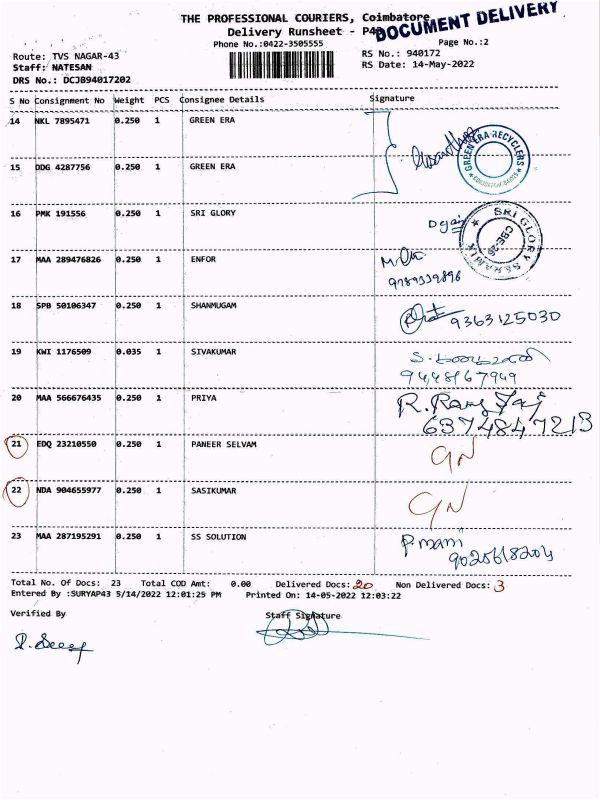 THE PROFESSIONAL COURIERS, Coimbatore
Delivery Runsheet - P43
DOCUMENT DELIVERY
Phone No.:0422-3505555
Page No.:2
Route: TVS NAGAR-43
RS No.: 940172
Staff: NATESAN
RS Date: 14-May-2022
DRS No.: DCJB94017202
S No Consignment No Weight PCS Consignee Details Signature
14 NKL 7895471 0.250 1 GREEN ERA
GREEN ERA RECYCLERS
15 DDG 4287756 0.250 1 GREEN ERA
16 PMK 191556 0.250 1 SRI GLORY
SRI GLORY CERAMIK CBE-26
17 MAA 289476826 0.250 1 ENFOR
18 SPB 50106347 0.250 1 SHANMUGAM 9363125030
19 KWI 1176509 0.035 1 SIVAKUMAR
20 MAA 566676435 0.250 1 PRIYA R.
6374847213
21 EDQ 23210550 0.250 1 PANEER SELVAM GN
22 NDA 904655977 0.250 1 SASIKUMAR GN
23 MAA 287195291 0.250 1 SS SOLUTION P.mani
Total No. Of Docs: 23 Total COD Amt: 0.00 Delivered Docs: 20 Non Delivered Docs: 3
Entered By :SURYAP43 5/14/2022 12:01:25 PM Printed On: 14-05-2022 12:03:22
Verified By Staff Signature